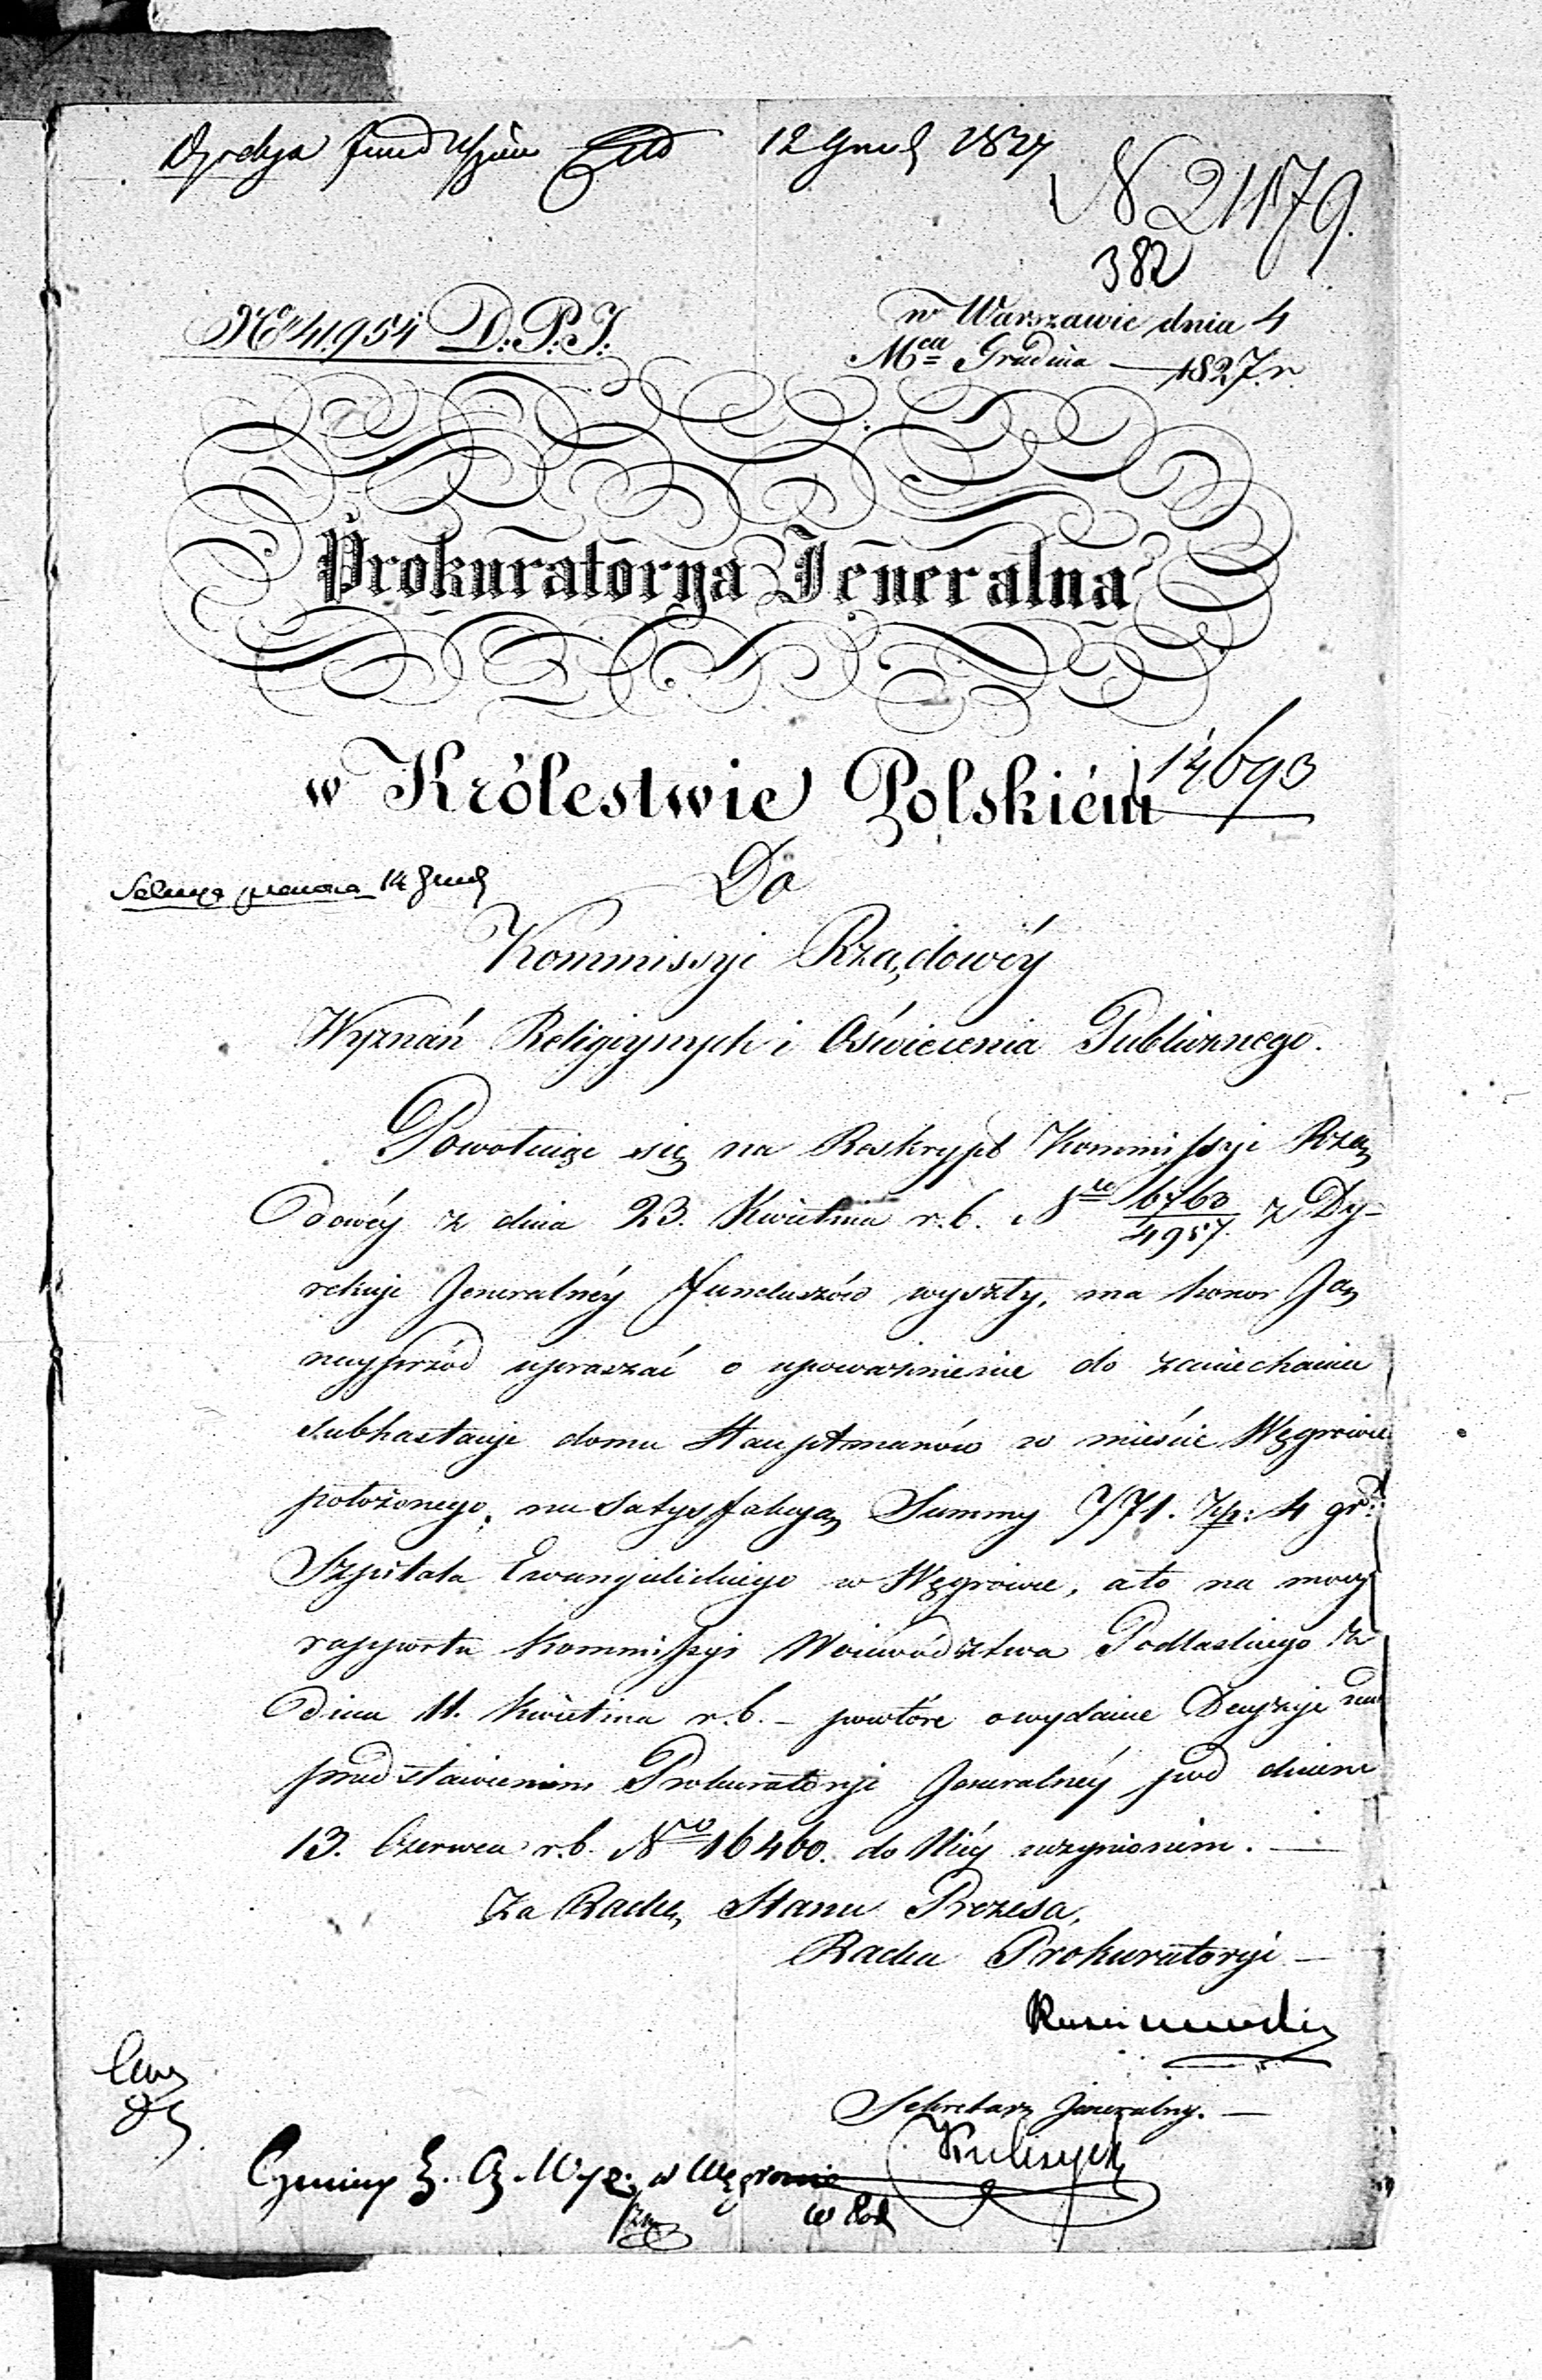 Dyrekcya funduszów 12 Grud 1827
N 21179.
382
Nº 41954 D.P.J.
w Warszawie dnia 4
Mca Grudnia — 1827. r.
Prokuratorya Jeneralna
w Królestwie Polskiém
14693
Do
Sekcya prawna 14 Grud
Kommissyi Rządowéy
Wyznań Religiynych i Oświecenia Publicznego.
Powołuiąc się na Reskrypt Kommissyi Rzą
dowéy z dnia 23. Kwietnia r. b. Nro 6763/4957. z Dy-
rekcyi Jeneralnéy Funduszów wyszły, ma honor Ją
nayprzód upraszać o upoważnienie do zaniechania
subhastacyi domu Hauptmanów w mieście Węgrowie
położonego, na satysfakcyą Summy 771. Złp: 4 gr.
Szpitala Ewangielickiego w Węgrowie, a to na mocy
rapportu Kommissyi Woiewództwa Podlaskiego z
dnia 11. Kwietnia r. b. – powtóre o wydanie Decyzyi nad
przedstawieniem Prokuratoryi Jeneralnéy pod dniem
13. Czerwca r. b. Nro 16460. do Niéy uczynioném. —
Za Radcę Stanu Prezesa,
Radca Prokuratoryi —
Sekretarz Jeneralny. —
w Węgrowie